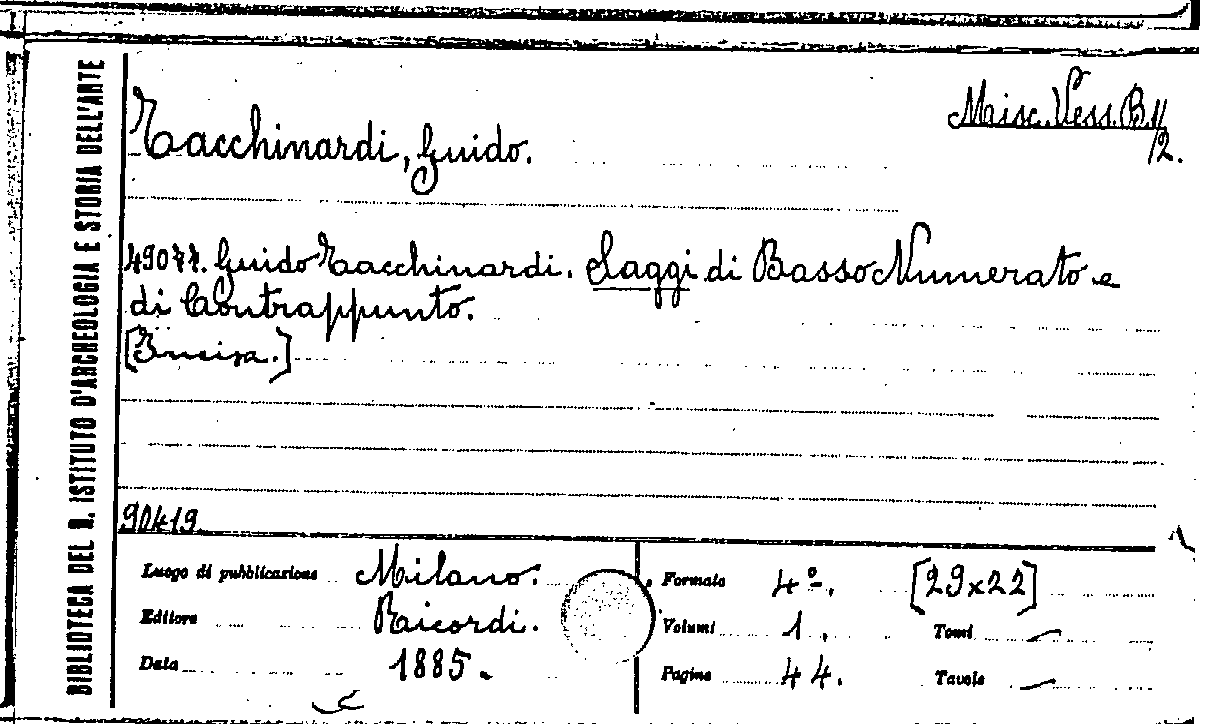 BIBLIOTECA DEL R. ISTITUTO D'ARCHEOLOGIA E STORIA DELL'ARTE
Misc. Vess. B11/2.
Tacchinardi, Guido.
49077. Guido Tacchinardi. Saggi di Basso Numerato e
di Contrappunto.
[Incisa.]
90419
Luogo di pubblicazione Milano.
Editore Ricordi.
Data 1885.
Formato 4º. [29x22]
Volumi 1. Tomi –
Pagine 44. Tavole –